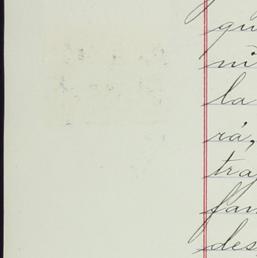 qu
ni
la
rá,
tra
fan
des